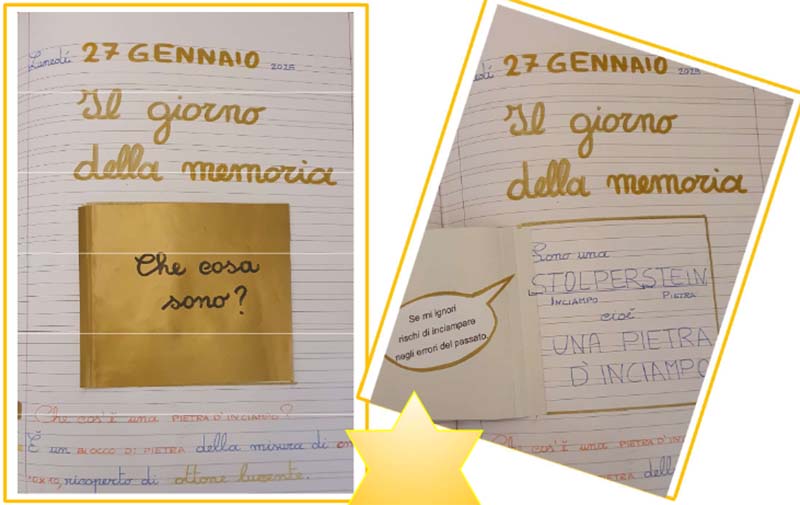 Lunedí 27 GENNAIO 2025
Il giorno
della memoria
Che cosa
sono?
Che cos'è una PIETRA D'INCIAMPO?
È un BLOCCO DI PIETRA della misura di cm
10x10, ricoperto di ottone lucente.
27 GENNAIO 2025
Il giorno
della memoria
Se mi ignori
rischi di inciampare
negli errori del passato.
Sono una
STOLPERSTEIN
INCIAMPO PIETRA
cioè
UNA PIETRA
D'INCIAMPO
Che cos'è una PIETRA D'IN
PIETRA dell